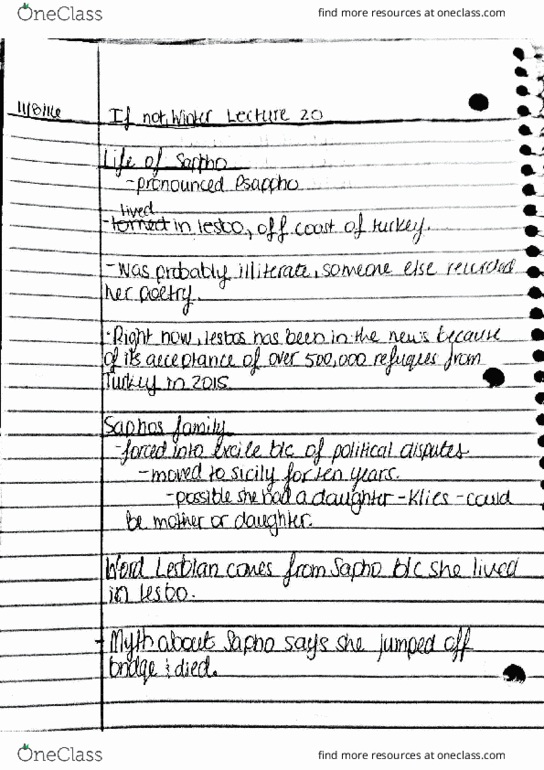 OneClass
find more resources at oneclass.com
11/8/16
If not, Winter Lecture 20
Life of Sappho
-pronounced Psappho
lived
in lesbo, off coast of turkey.
-was probably illiterate, someone else recorded
her poetry.
-Right now, lesbos has been in the news because
of its acceptance of over 500,000 refugees from
Turkey in 2015.
Saphos family
-forced into excile b/c of political disputes
-moved to sicily for ten years.
-possible she had a daughter -Klies -could
be mother or daughter.
Word Lesbian comes from Sapho b/c she lived
in lesbo.
-Myth about Sapho says she jumped off
bridge & died.
OneClass
find more resources at oneclass.com